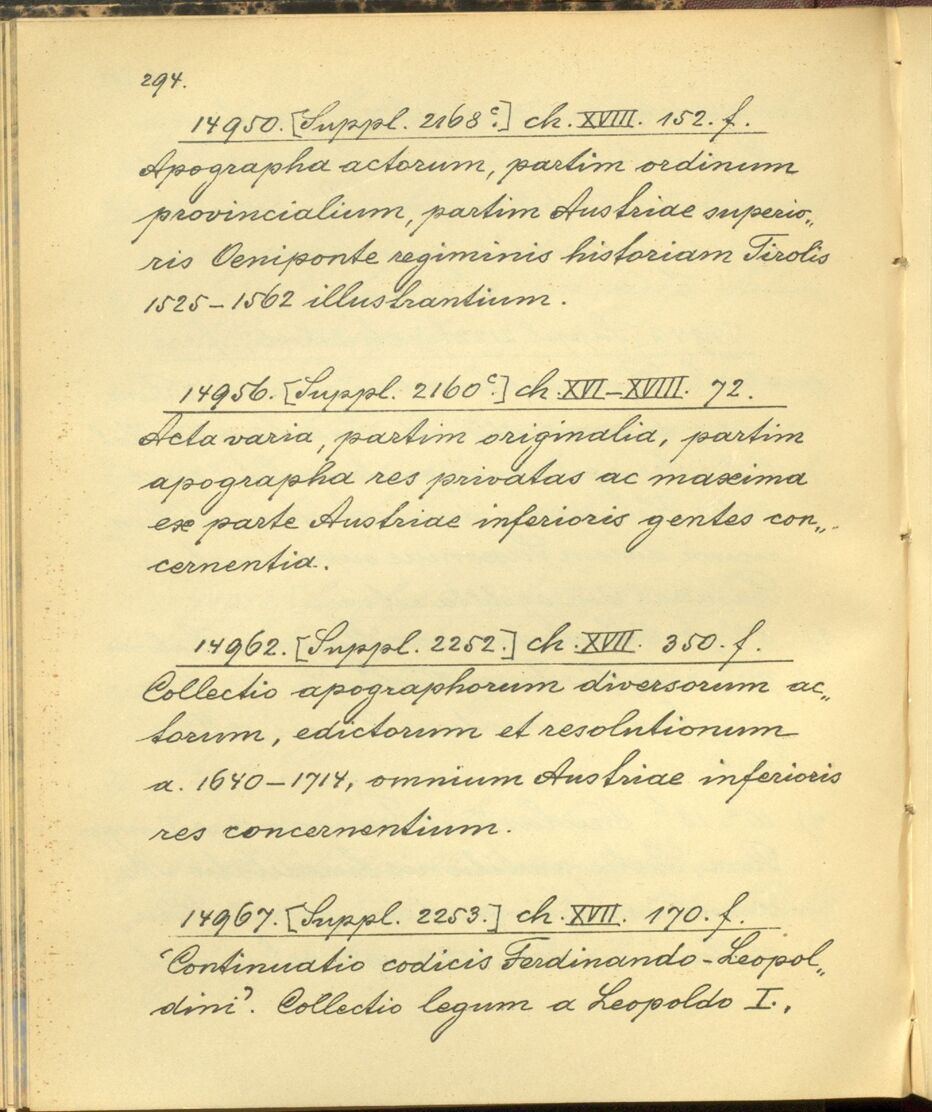 294.
14950. [Suppl. 2168ᶜ.] ch. XVIII. 152. f.
Apographa actorum, partim ordinum
provincialium, partim Austriae superio„
ris Oeniponte regiminis historiam Tirolis
1525–1562 illustrantium.
14956. [Suppl. 2160ᶜ.] ch. XVI–XVIII. 72.
Acta varia, partim originalia, partim
apographa res privatas ac maxima
ex parte Austriae inferioris gentes con„
cernentia.
14962. [Suppl. 2252.] ch. XVII. 350. f.
Collectio apographorum diversorum ac„
torum, edictorum et resolutionum
a. 1640–1714, omnium Austriae inferioris
res concernentium.
14967. [Suppl. 2253.] ch. XVII. 170. f.
‘Continuatio codicis Ferdinando-Leopol„
dini’. Collectio legum a Leopoldo I.,